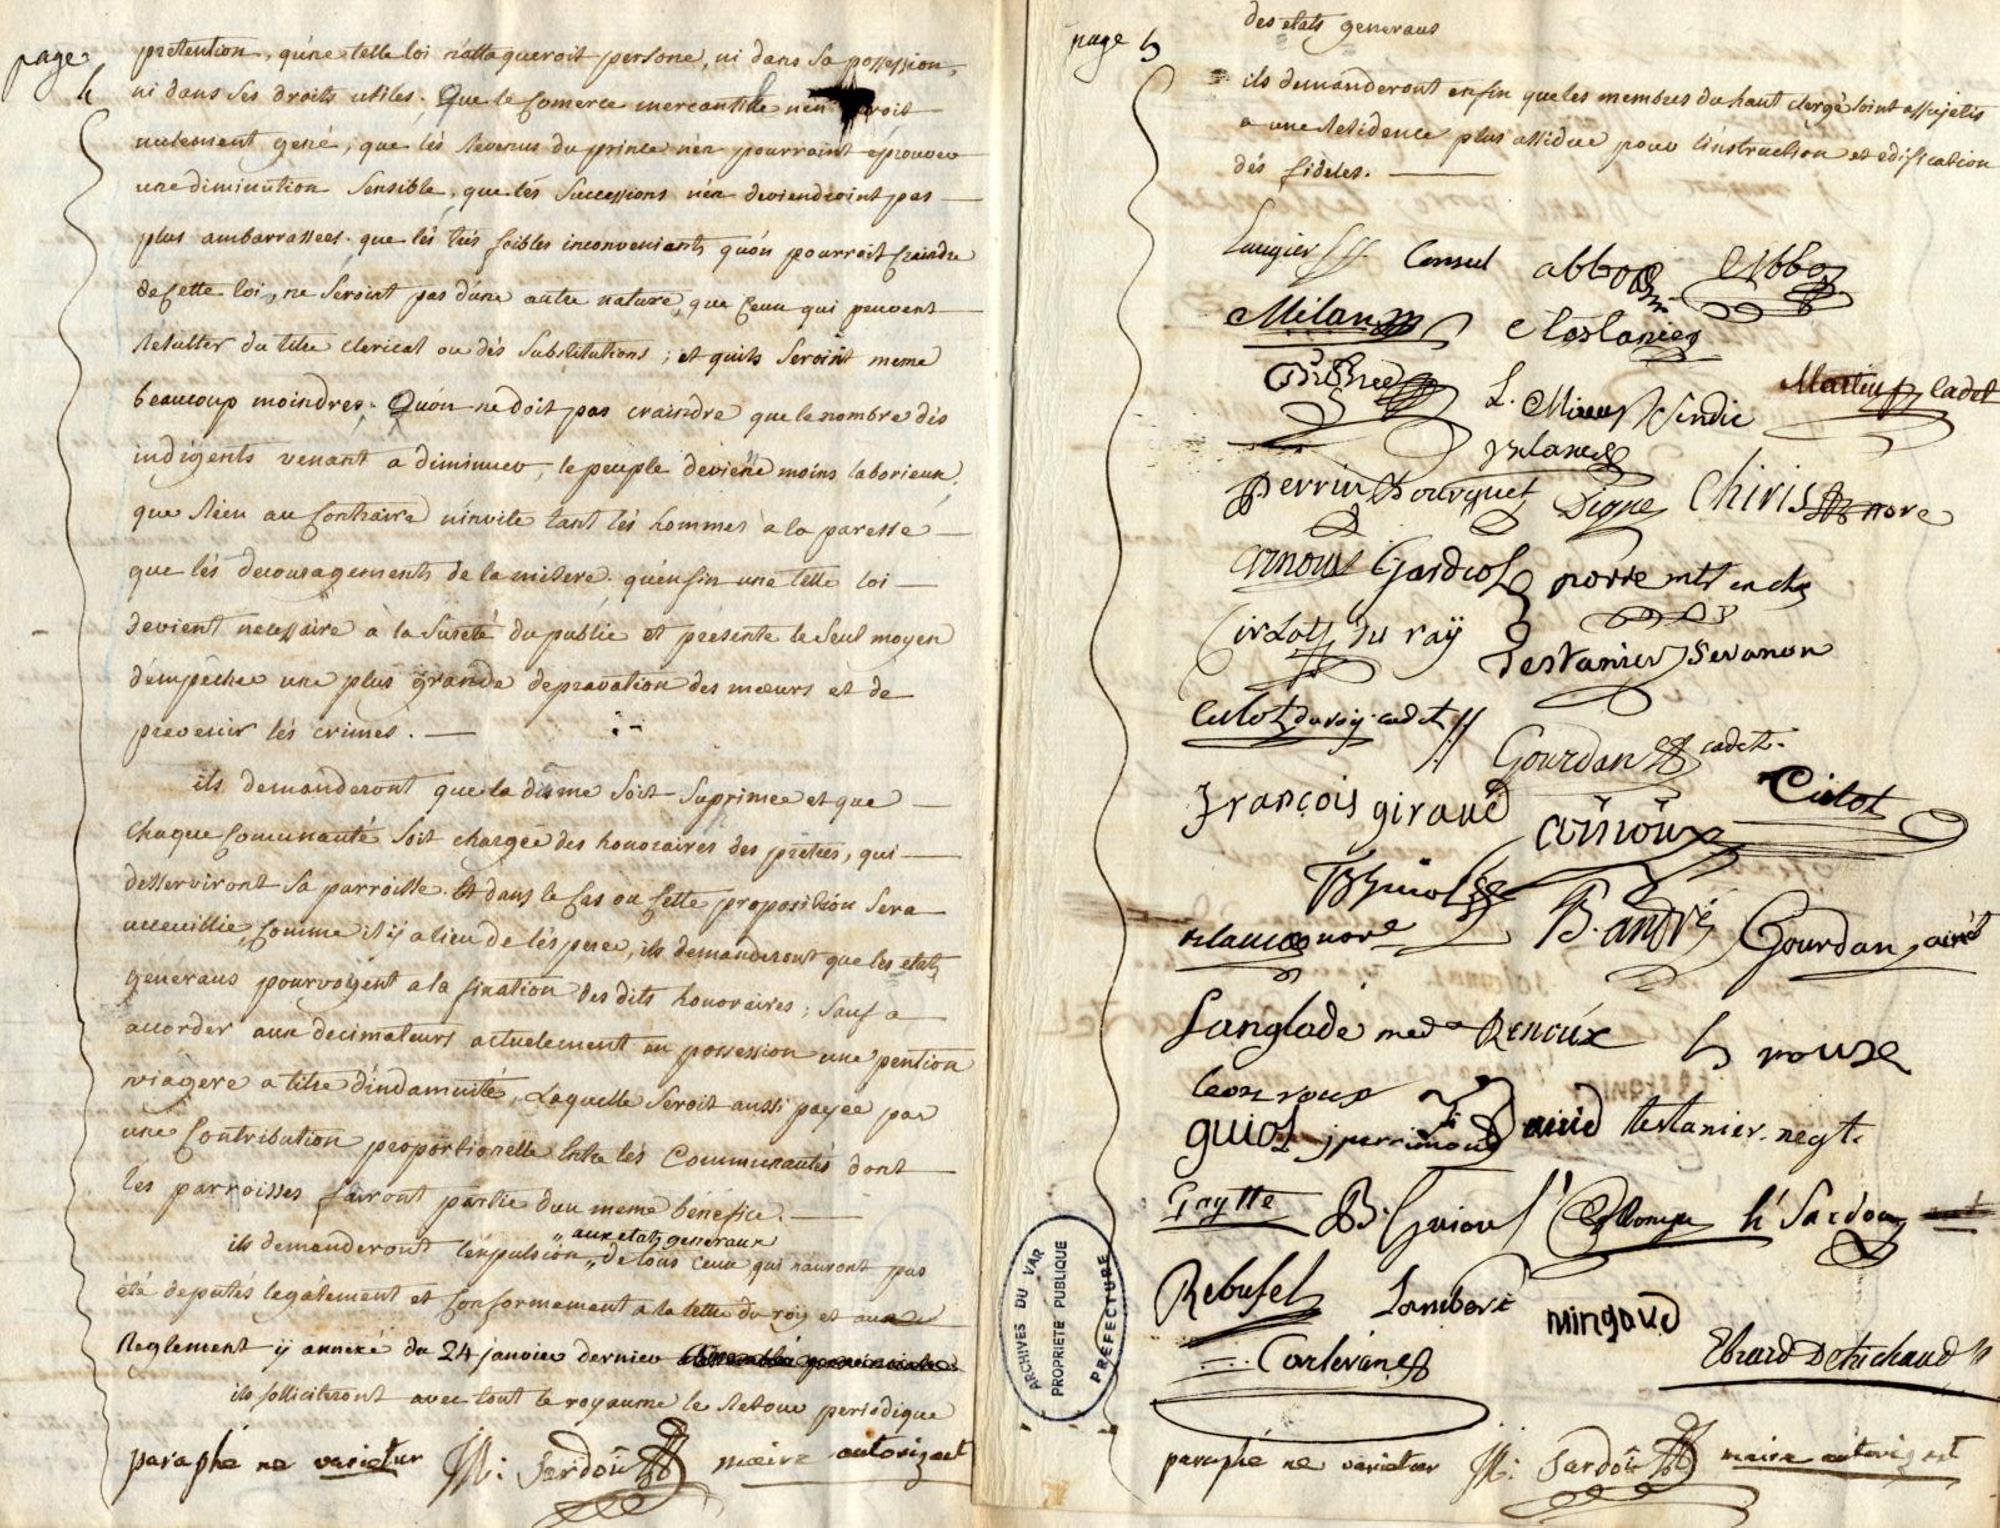 page 4
prétention, qu'une telle loi n'attaqueroit persone, ni dans sa possession,
ni dans ses droits utiles. Que le comerce mercantille n'en seroit
nulement gené, que lés revenus du prince n'en pourroint éprouver
une diminution sensible, que lés successions n'en deviendroint pas
plus ambarrassées. que lés trés foibles inconvenients qu'on pourroit craindre
de cette loi, ne seroint pas d'une autre nature, que ceux qui peuvent
resulter du titre clerical ou dés substitutions; et quils seroint meme
beaucoup moindres. Qu'on ne doit pas craindre que le nombre dés
indigents venant a diminuer, le peuple deviene moins laborieux,
que rien au contraire n'invite tant lés hommes à la paresse
que lés decouragements de la misere. qu'enfin une telle loi
devient necessaire à la sureté du public et présente le seul moyen
d'empêcher une plus grande depravation des mœurs et de
prevenir lés crimes.
ils demanderont que la disme soit suprimée et que
chaque comunauté soit chargée des honoraires des prétres, qui
desserviront sa parroisse. Et dans le cas où cette proposition sera
accueuillie, comme il ÿ a lieu de l'ésperer, ils demanderont que les etats
generaus pourvoÿent a la fixation des dits honoraires; sauf a
accorder aux decimateurs actuelement en possession une pention
viagere a titre d'indamnité, laquelle seroit aussi payée par
une contribution proportionelle entre lés communautés dont
les parroisses fairont partie d'un meme bénéfice.
aux etats generaux
ils demanderont l'expulsion de tous ceux qui n'auront pas
été deputés legalement et conformement a la lettre du roy et au
reglement ÿ annexé du 24 janvier dernier
ils solliciteront avec tout le royaume le retour periodique
paraphé ne varietur M: Sardou maire autorizant
page 5
des etats generaus
ils demanderont enfin que les membres du haut clergé soint assujetis
a une residence plus assidue pour l'instruction et edification
dés fideles.
Laugier Consul abbo Abbo
Milan testanier
L. Mireur sindic Martin cadet
perrin Bourguet Digne Chiris
arnoux Gardiol porre
du raÿ testanier Sevanon
cadet
Gourdan cadet
françois giraud arnoux Ciolot
B. andré Gourdan ainé
Langlade med Renoux h roux
leon roux
guiol j perrimond ainé testanier negt.
Gaytte B. Guiou h Sardou
Rebufel Lambert Mingaud
Carlevan Ebrard
paraphé ne varietur M: Sardou maire autorizant
ARCHIVES DU VAR
PROPRIETE PUBLIQUE
PREFECTURE